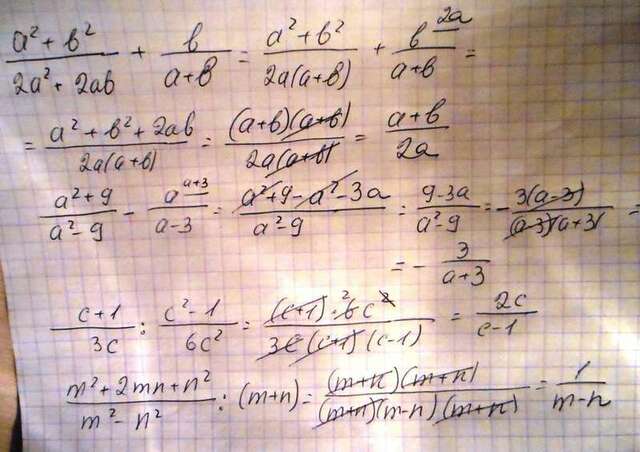 (a² + b²)/(2a² + 2ab) + b/(a + b) = (a² + b²)/(2a(a + b)) + b^(2a)/(a + b) =
= (a² + b² + 2ab)/(2a(a + b)) = ((a + b)(a + b))/(2a(a + b)) = (a + b)/(2a)
(a² + 9)/(a² - 9) - a^(a+3)/(a - 3) = (a² + 9 - a² - 3a)/(a² - 9) = (9 - 3a)/(a² - 9) = -(3(a - 3))/((a - 3)(a + 3)) =
= - 3/(a + 3)
(c + 1)/(3c) : (c² - 1)/(6c²) = ((c + 1) · 6² c²)/(3c(c + 1)(c - 1)) = 2c/(c - 1)
(m² + 2mn + n²)/(m² - n²) : (m + n) = ((m + n)(m + n))/((m + n)(m - n)(m + n)) = 1/(m - n)